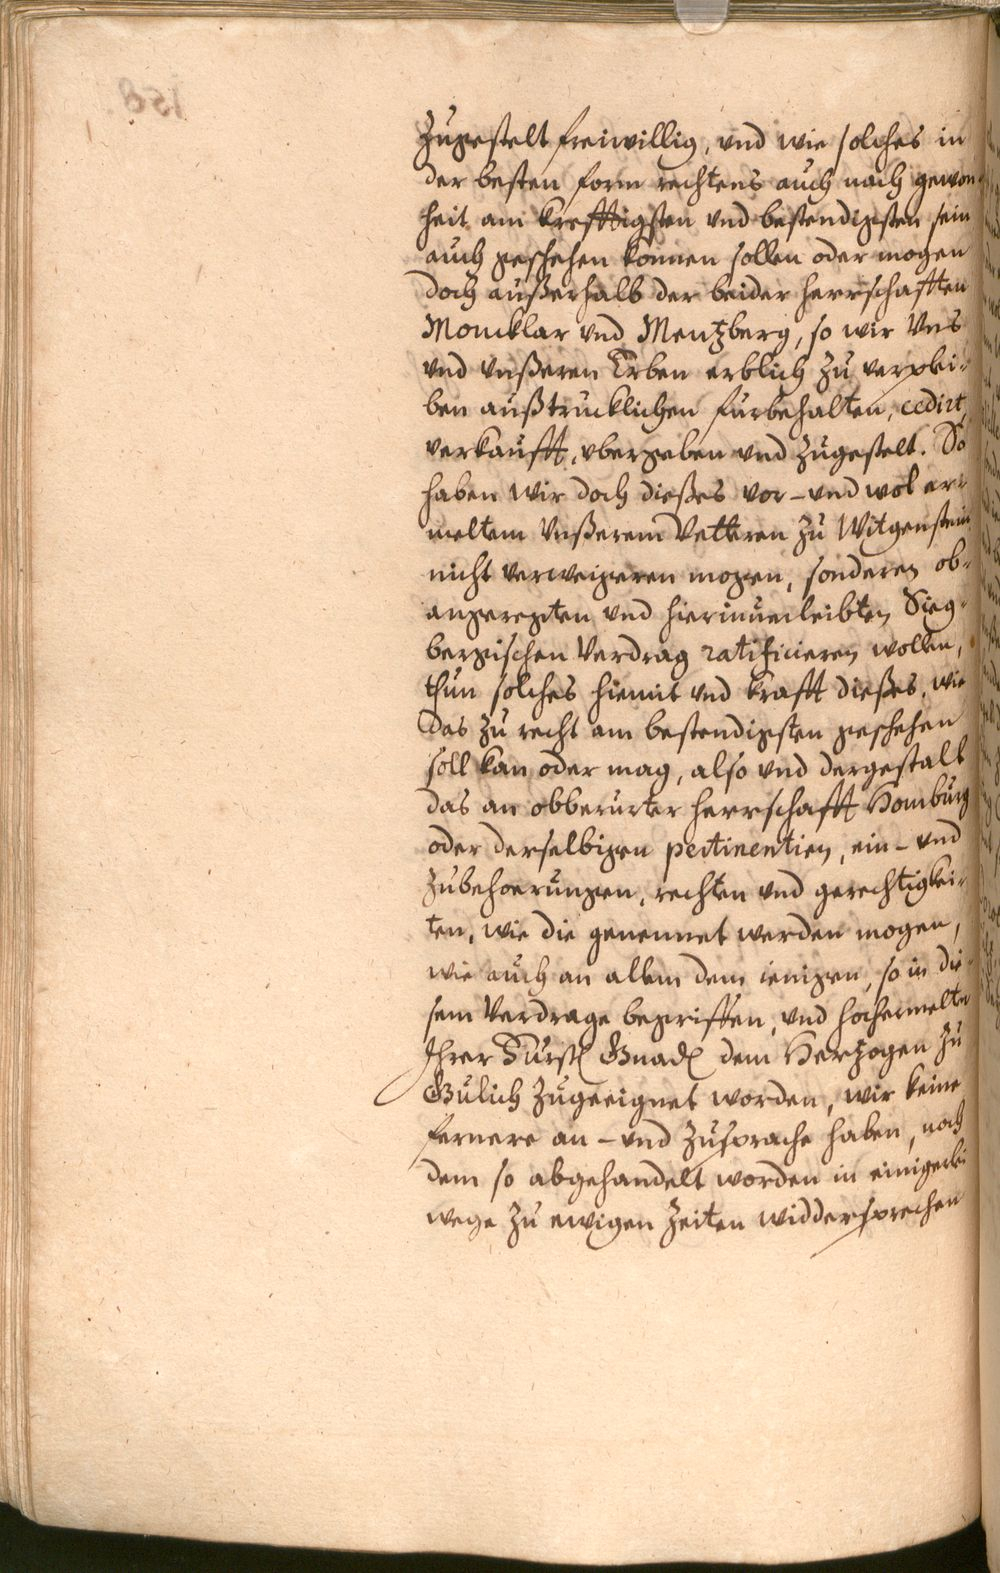 Zugestelt freiwillig, vnd wie solches in
der besten form rechtens auch nach gewon
heit am krefftigsten vnd bestendigsten sein
auch geschehen können sollen oder mogen
doch außerhalb der beider herrschafften
Momcklar vnd Mentzberg, so wir Vns
vnd vnßeren Erben erblich zu verplei-
ben außtrucklichen furbehalten, cedirt,
verkaufft, vbergeben vnd zugestelt. So
haben wir doch dießes vor- vnd wol er-
meltem Vnßerem Vetteren zu Witgenstein
nicht verweigeren mogen, sonderen ob-
angeregten vnd hierinuerleibten Sieg-
bergischen Verdrag ratificieren wollen,
thun solches hiemit vnd krafft dießes, wie
das zu recht am bestendigsten geschehen
soll kan oder mag, also vnd dergestalt
das an obberurter herrschafft Homburg
oder derselbigen pertinentien, ein- vnd
zubehoerungen, rechten vnd gerechtigkei-
ten, wie die genennet werden mogen,
wie auch an allem dem ienigen, so in die-
sem Verdrage begriffen, vnd hochermelter
Ihrer Furstl Gnadl dem Hertzogen zu
Gulich zugeeignet worden, wir keine
fernere an- vnd zusprache haben, noch
dem so abgehandelt worden in einigerlei
wege zu ewigen zeiten widdersprechen